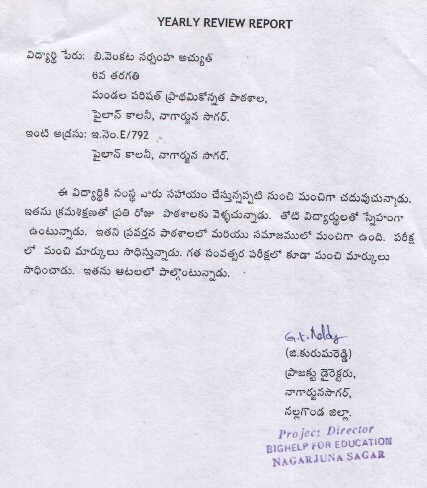 YEARLY REVIEW REPORT
విద్యార్థి పేరు: బి.వెంకట నర్సింహ అచ్యుత్
6వ తరగతి
మండల పరిషత్ ప్రాథమికోన్నత పాఠశాల,
పైలాన్ కాలనీ, నాగార్జున సాగర్.
ఇంటి అడ్రసు: ఇ.నెం.E/792
పైలాన్ కాలనీ, నాగార్జున సాగర్.
ఈ విద్యార్థికి సంస్థ వారు సహాయం చేస్తున్నప్పటి నుంచి మంచిగా చదువుచున్నాడు.
ఇతను క్రమశిక్షణతో ప్రతి రోజు పాఠశాలకు వెళ్ళుచున్నాడు. తోటి విద్యార్థులతో స్నేహంగా
ఉంటున్నాడు. ఇతని ప్రవర్తన పాఠశాలలో మరియు సమాజములో మంచిగా ఉంది. పరీక్ష
లో మంచి మార్కులు సాధిస్తున్నాడు. గత సంవత్సర పరీక్షలో కూడా మంచి మార్కులు
సాధించాడు. ఇతను ఆటలలో పాల్గొంటున్నాడు.
G.K.Reddy
(జి.కురుమరెడ్డి)
ప్రాజక్టు డైరెక్టరు,
నాగార్జునసాగర్,
నల్లగొండ జిల్లా.
Project Director
BIGHELP FOR EDUCATION
NAGARJUNA SAGAR